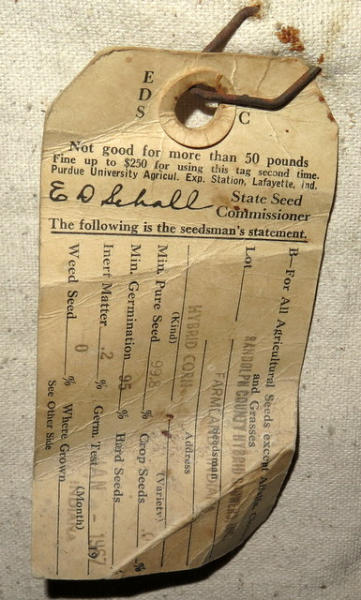 E
D
S
C
Not good for more than 50 pounds
Fine up to $250 for using this tag second time.
Purdue University Agricul. Exp. Station, Lafayette, Ind.
E D Schall State Seed
Commissioner
The following is the seedsman's statement.
B—For All Agricultural Seeds except
and Grasses
Lot RANDOLPH COUNTY HYBRID
Seedsman
FARMLAND, INDIANA
HYBRID CORN Address
(Kind) (Variety)
Min. Pure Seed 99.8 % Crop Seeds %
Min. Germination 95 % Hard Seeds
Inert Matter .2 % Germ. Test JAN - 1967
(Month)
Weed Seed 0 % Where Grown INDIANA
See Other Side